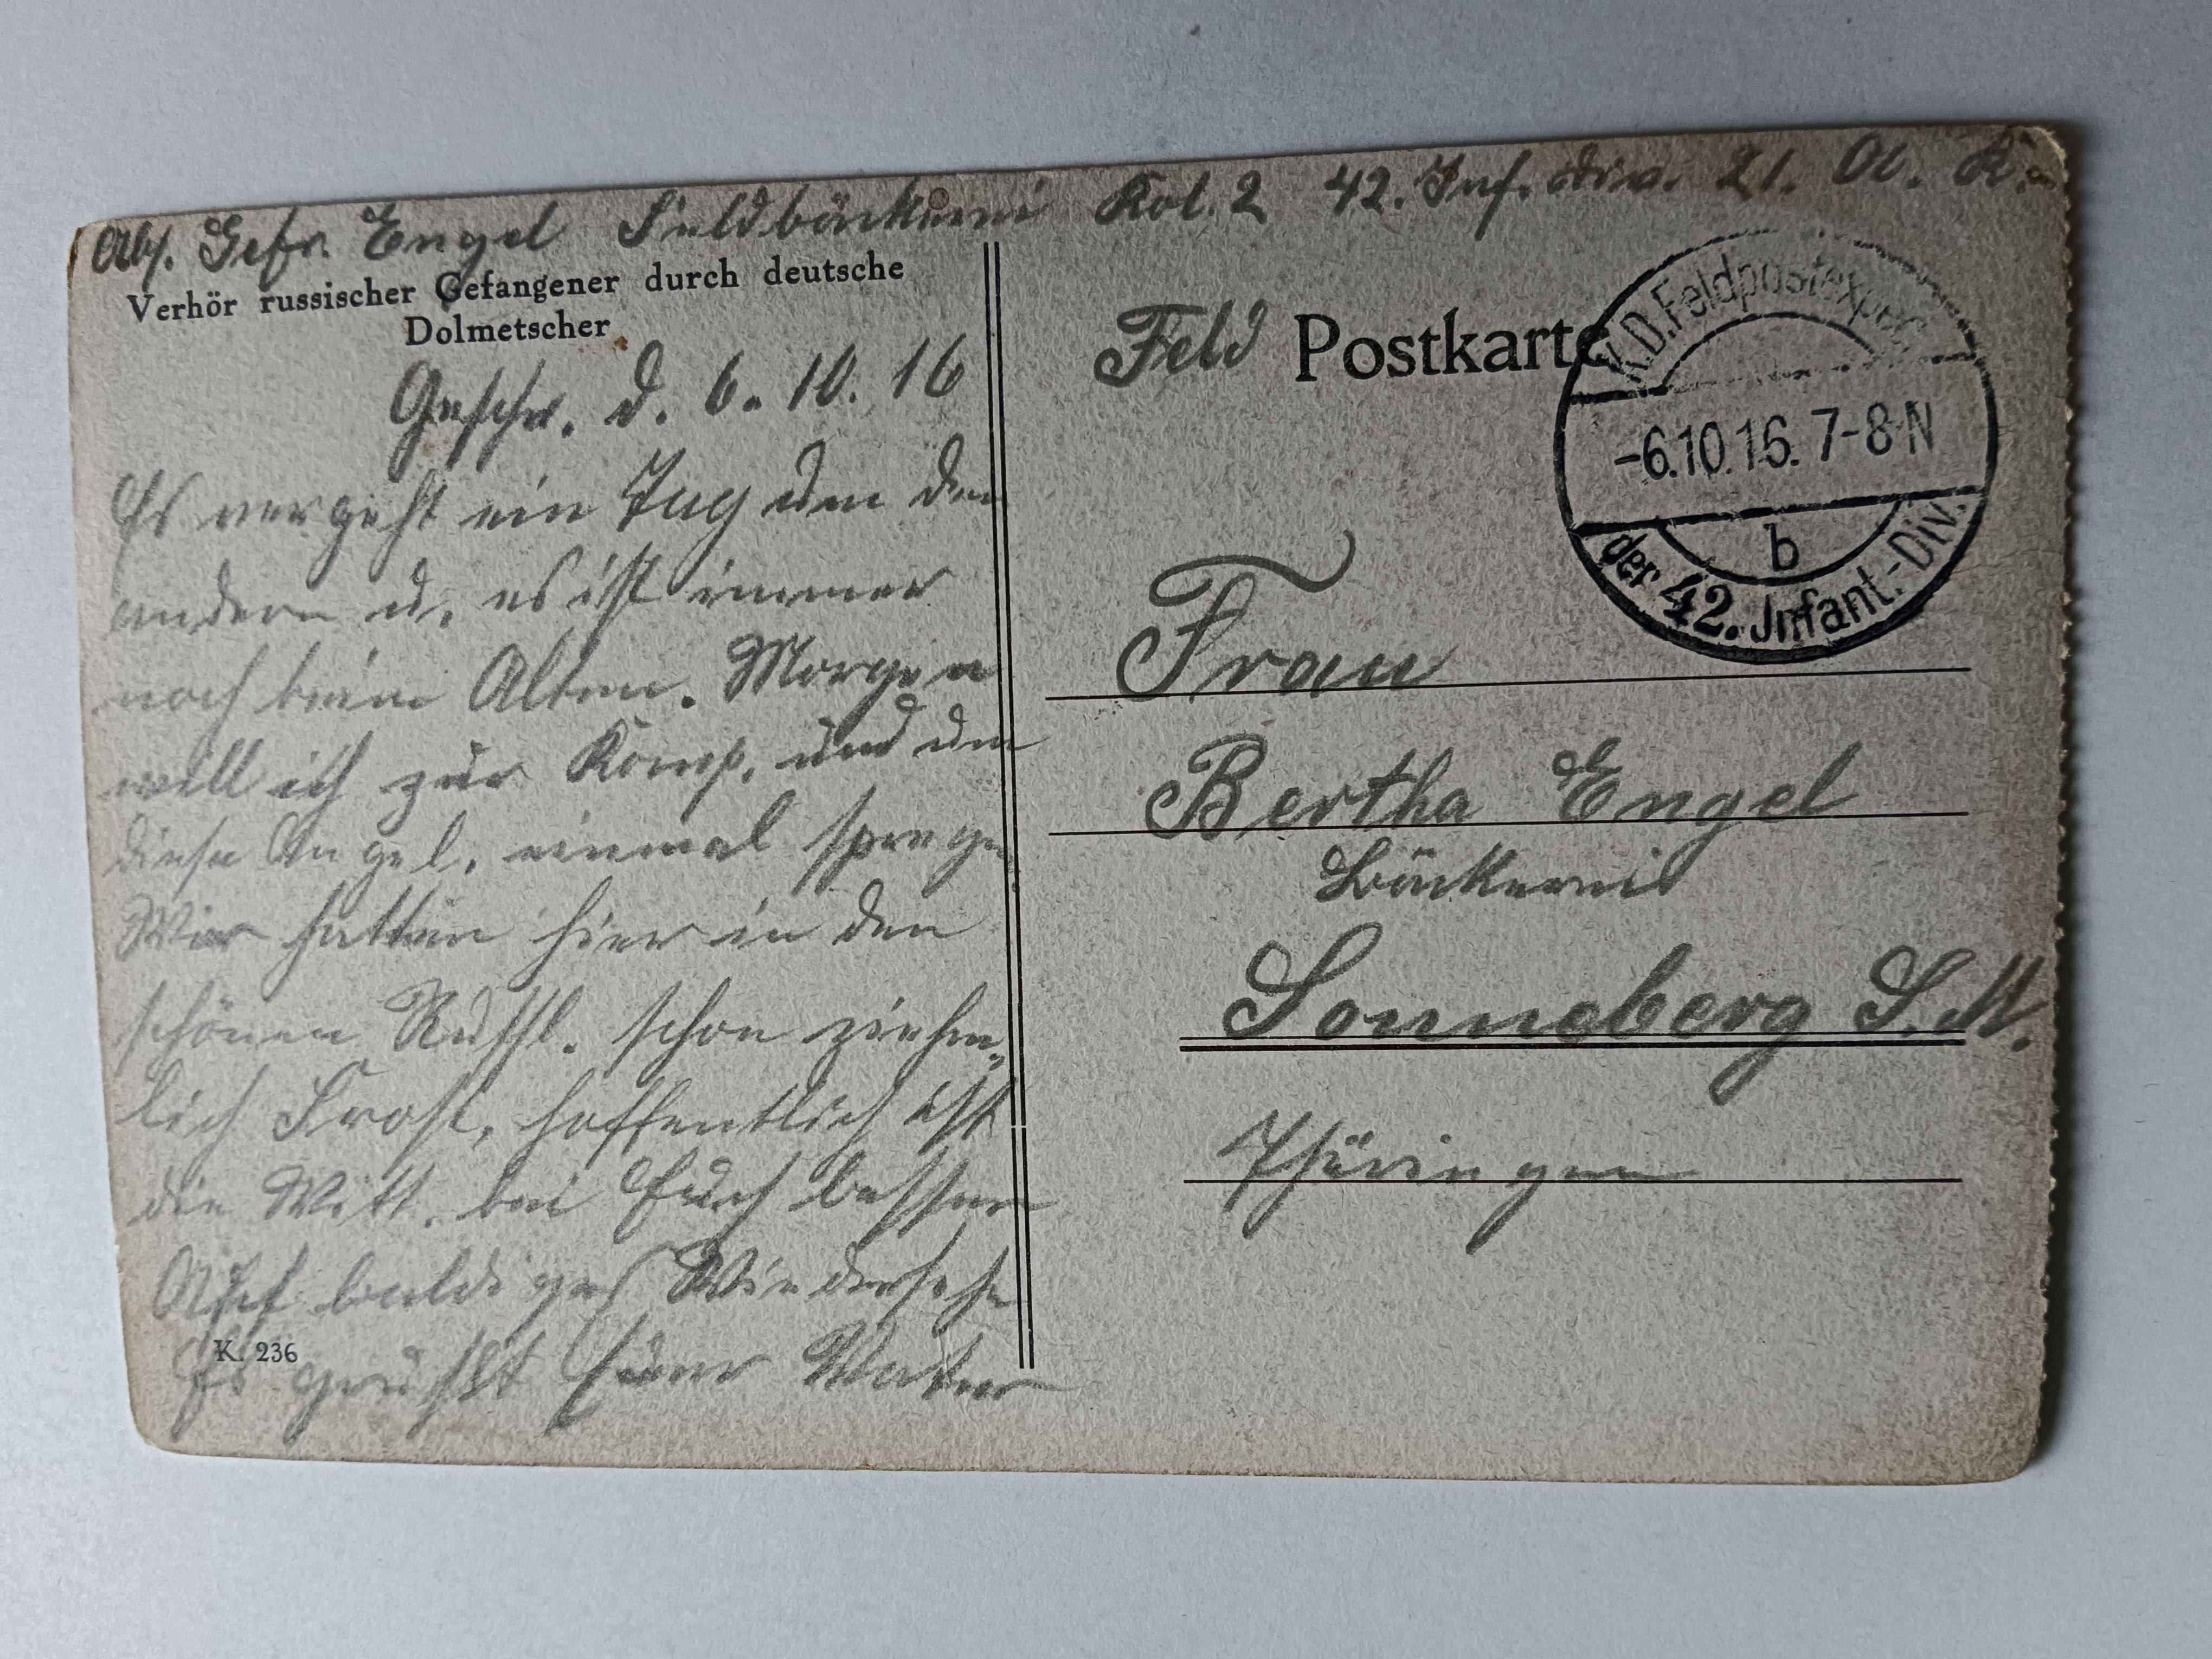 Abs. Gefr. Engel Feldbäckerei Kol. 2 42. Inf. Div. 21. A. K.
Verhör russischer Gefangener durch deutsche
Dolmetscher
Geschr. d. 6. 10. 16
Es vergeht ein Tag um den
andern u. es ist immer
noch beim Alten. Morgen
will ich zur Komp. und um
diese Angel. einmal
Wir hatten hier in den
schönen Russl. schon ziehm-
lich Frost, hoffentlich ist
die Witt. bei Euch besser
Auf baldiges Wiedersehn
Es grüßt Euer Vater
K. 236
Feld Postkarte
K.D. Feldpostexped.
-6.10.16. 7-8 N
b
der 42. Infant.-Div.
Frau
Bertha Engel
Bäckerei
Sonneberg S. M.
Thüringen